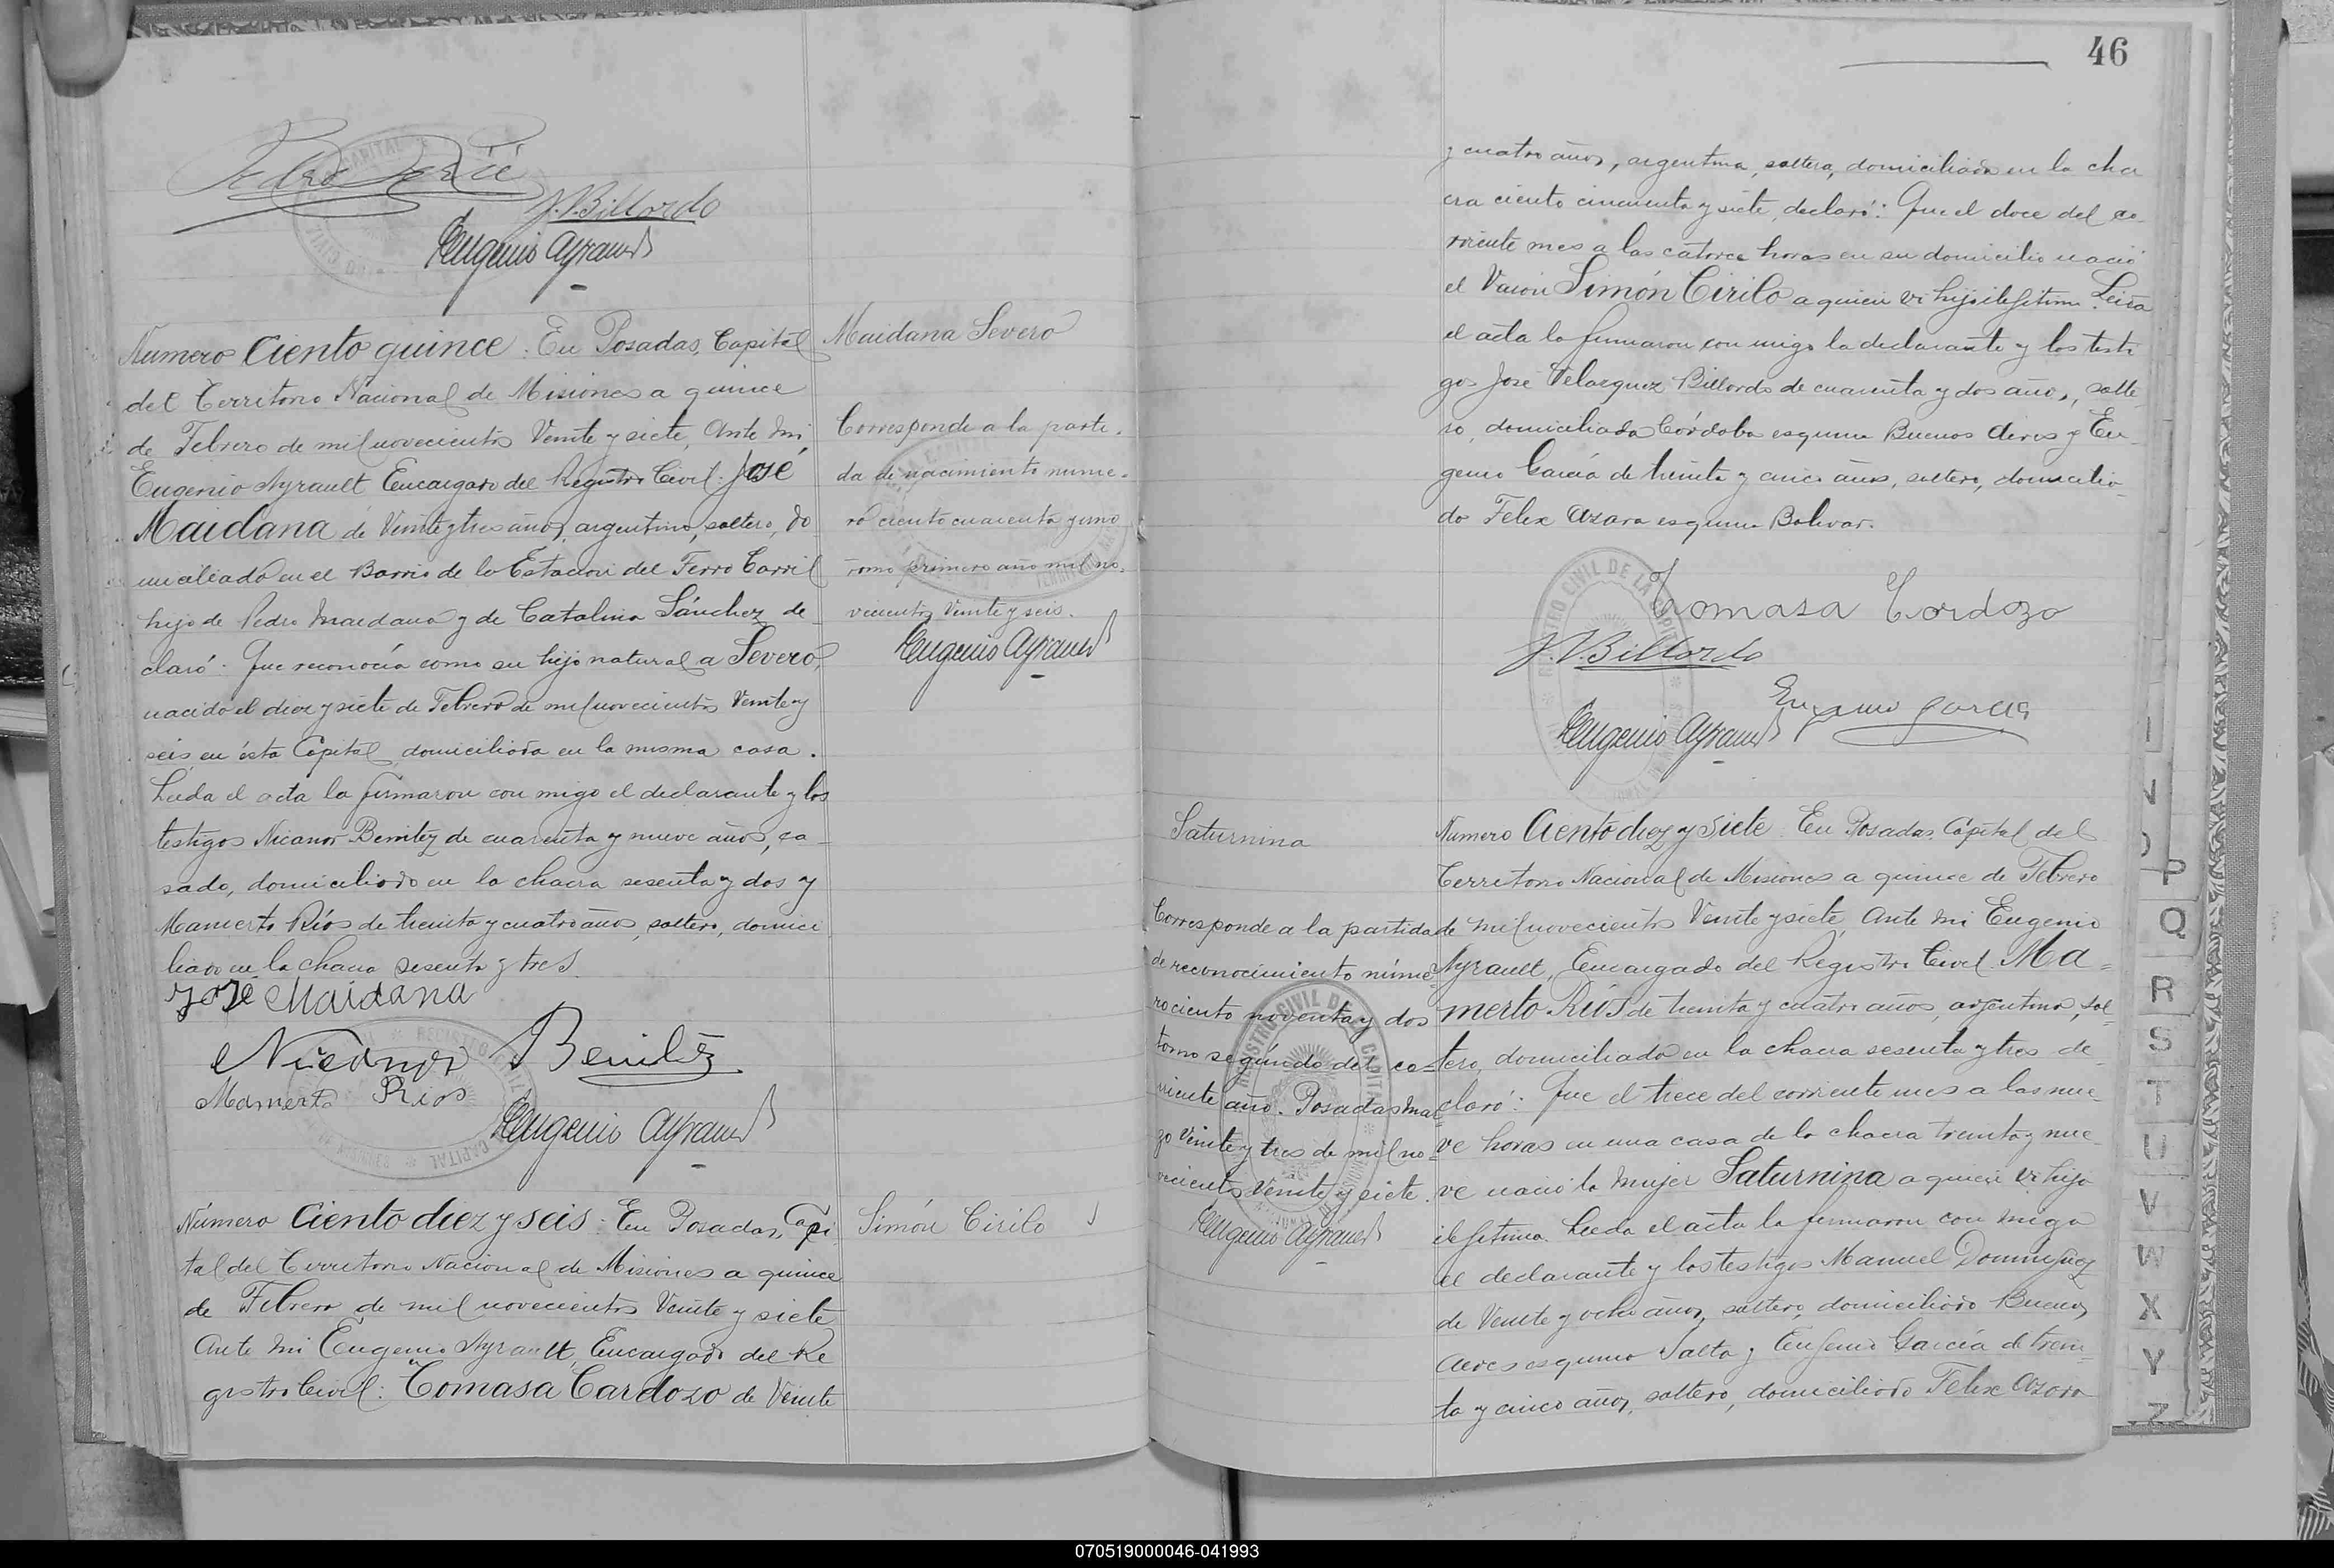 J. V. Billordo
Eugenio Ayrault
Numero Ciento quince. En Posadas, Capital
del Territorio Nacional de Misiones a quince
de Febrero de mil novecientos Veinte y siete, Ante mi
Eugenio Ayrault Encargado del Registro Civil: José
Maidana de Veinte y tres años, argentino, soltero, do
miciliado en el Barrio de la Estacion del Ferro Carril
hijo de Pedro Maidana y de Catalina Sánchez de-
claró: Que reconocía como su hijo natural a Severo,
nacido el diez y siete de Febrero de mil novecientos Veinte y
seis, en ésta Capital, domiciliada en la misma casa.
Leida el acta la firmaron con migo el declarante y los
testigos Nicanor Benitez de cuarenta y nueve años, ca-
sado, domiciliado en la chacra sesenta y dos y
Mamerto Ríos de treinta y cuatro años, soltero, domici
liado en la chacra sesenta y tres.
José Maidana
Nicanor Benitez
Mamerto Rios
Eugenio Ayrault
Maidana Severo
Corresponde a la parti-
da de nacimiento nume-
ro ciento cuarenta y uno
tomo primero año mil no-
vecientos Veinte y seis.
Eugenio Ayrault
Número Ciento diez y seis: En Posadas, Capi-
tal del Territorio Nacional de Misiones a quince
de Febrero de mil novecientos Veinte y siete
Ante mi Eugenio Ayrault, Encargado del Re
gistro Civil: Tomasa Cardozo de Veinte
Simón Cirilo
46
y cuatro años, argentina, soltera, domiciliada en la cha
cra ciento cincuenta y siete, declaró: Que el doce del co-
rriente mes a las catorce horas en su domicilio nació
el Varón Simón Cirilo a quien vi hijo ilegitimo. Leida
el acta la firmaron con migo la declarante y los testi
gos José Velazquez Billordo de cuarenta y dos años, solte-
ro, domiciliado Córdoba esquina Buenos Aires y Eu-
genio García de treinta y cinco años, soltero, domicilia-
do Felix Azara esquina Bolivar.
REGISTRO CIVIL DE LA CAPITAL
Tomasa Cardozo
J. V. Billordo
Eugenio Garcia
Eugenio Ayrault
Saturnina
Corresponde a la partida
de reconocimiento núme-
ro ciento noventa y dos
tomo segundo del co-
rriente año. Posadas Mar-
zo Veinte y tres de mil no-
vecientos Veinte y siete.
Eugenio Ayrault
Numero Ciento diez y siete. En Posadas, Capital del
Territorio Nacional de Misiones a quince de Febrero
de mil novecientos Veinte y siete, Ante mi Eugenio
Ayrault, Encargado del Registro Civil: Ma-
merto Ríos de treinta y cuatro años, argentino, sol-
tero, domiciliado en la chacra sesenta y tres de-
claró: Que el trece del corriente mes a las nue-
ve horas en una casa de la chacra treinta y nue-
ve nació la mujer Saturnina a quien vi hija
ilegitima. Leida el acta la firmaron con migo
el declarante y los testigos Manuel Dominguez
de Veinte y ocho años, soltero, domiciliado Buenos
Aires esquina Salta y Eugenio García de trein-
ta y cinco años, soltero, domiciliado Felix Azara
P
Q
R
S
T
U
V
W
X
Y
Z
070519000046-041993